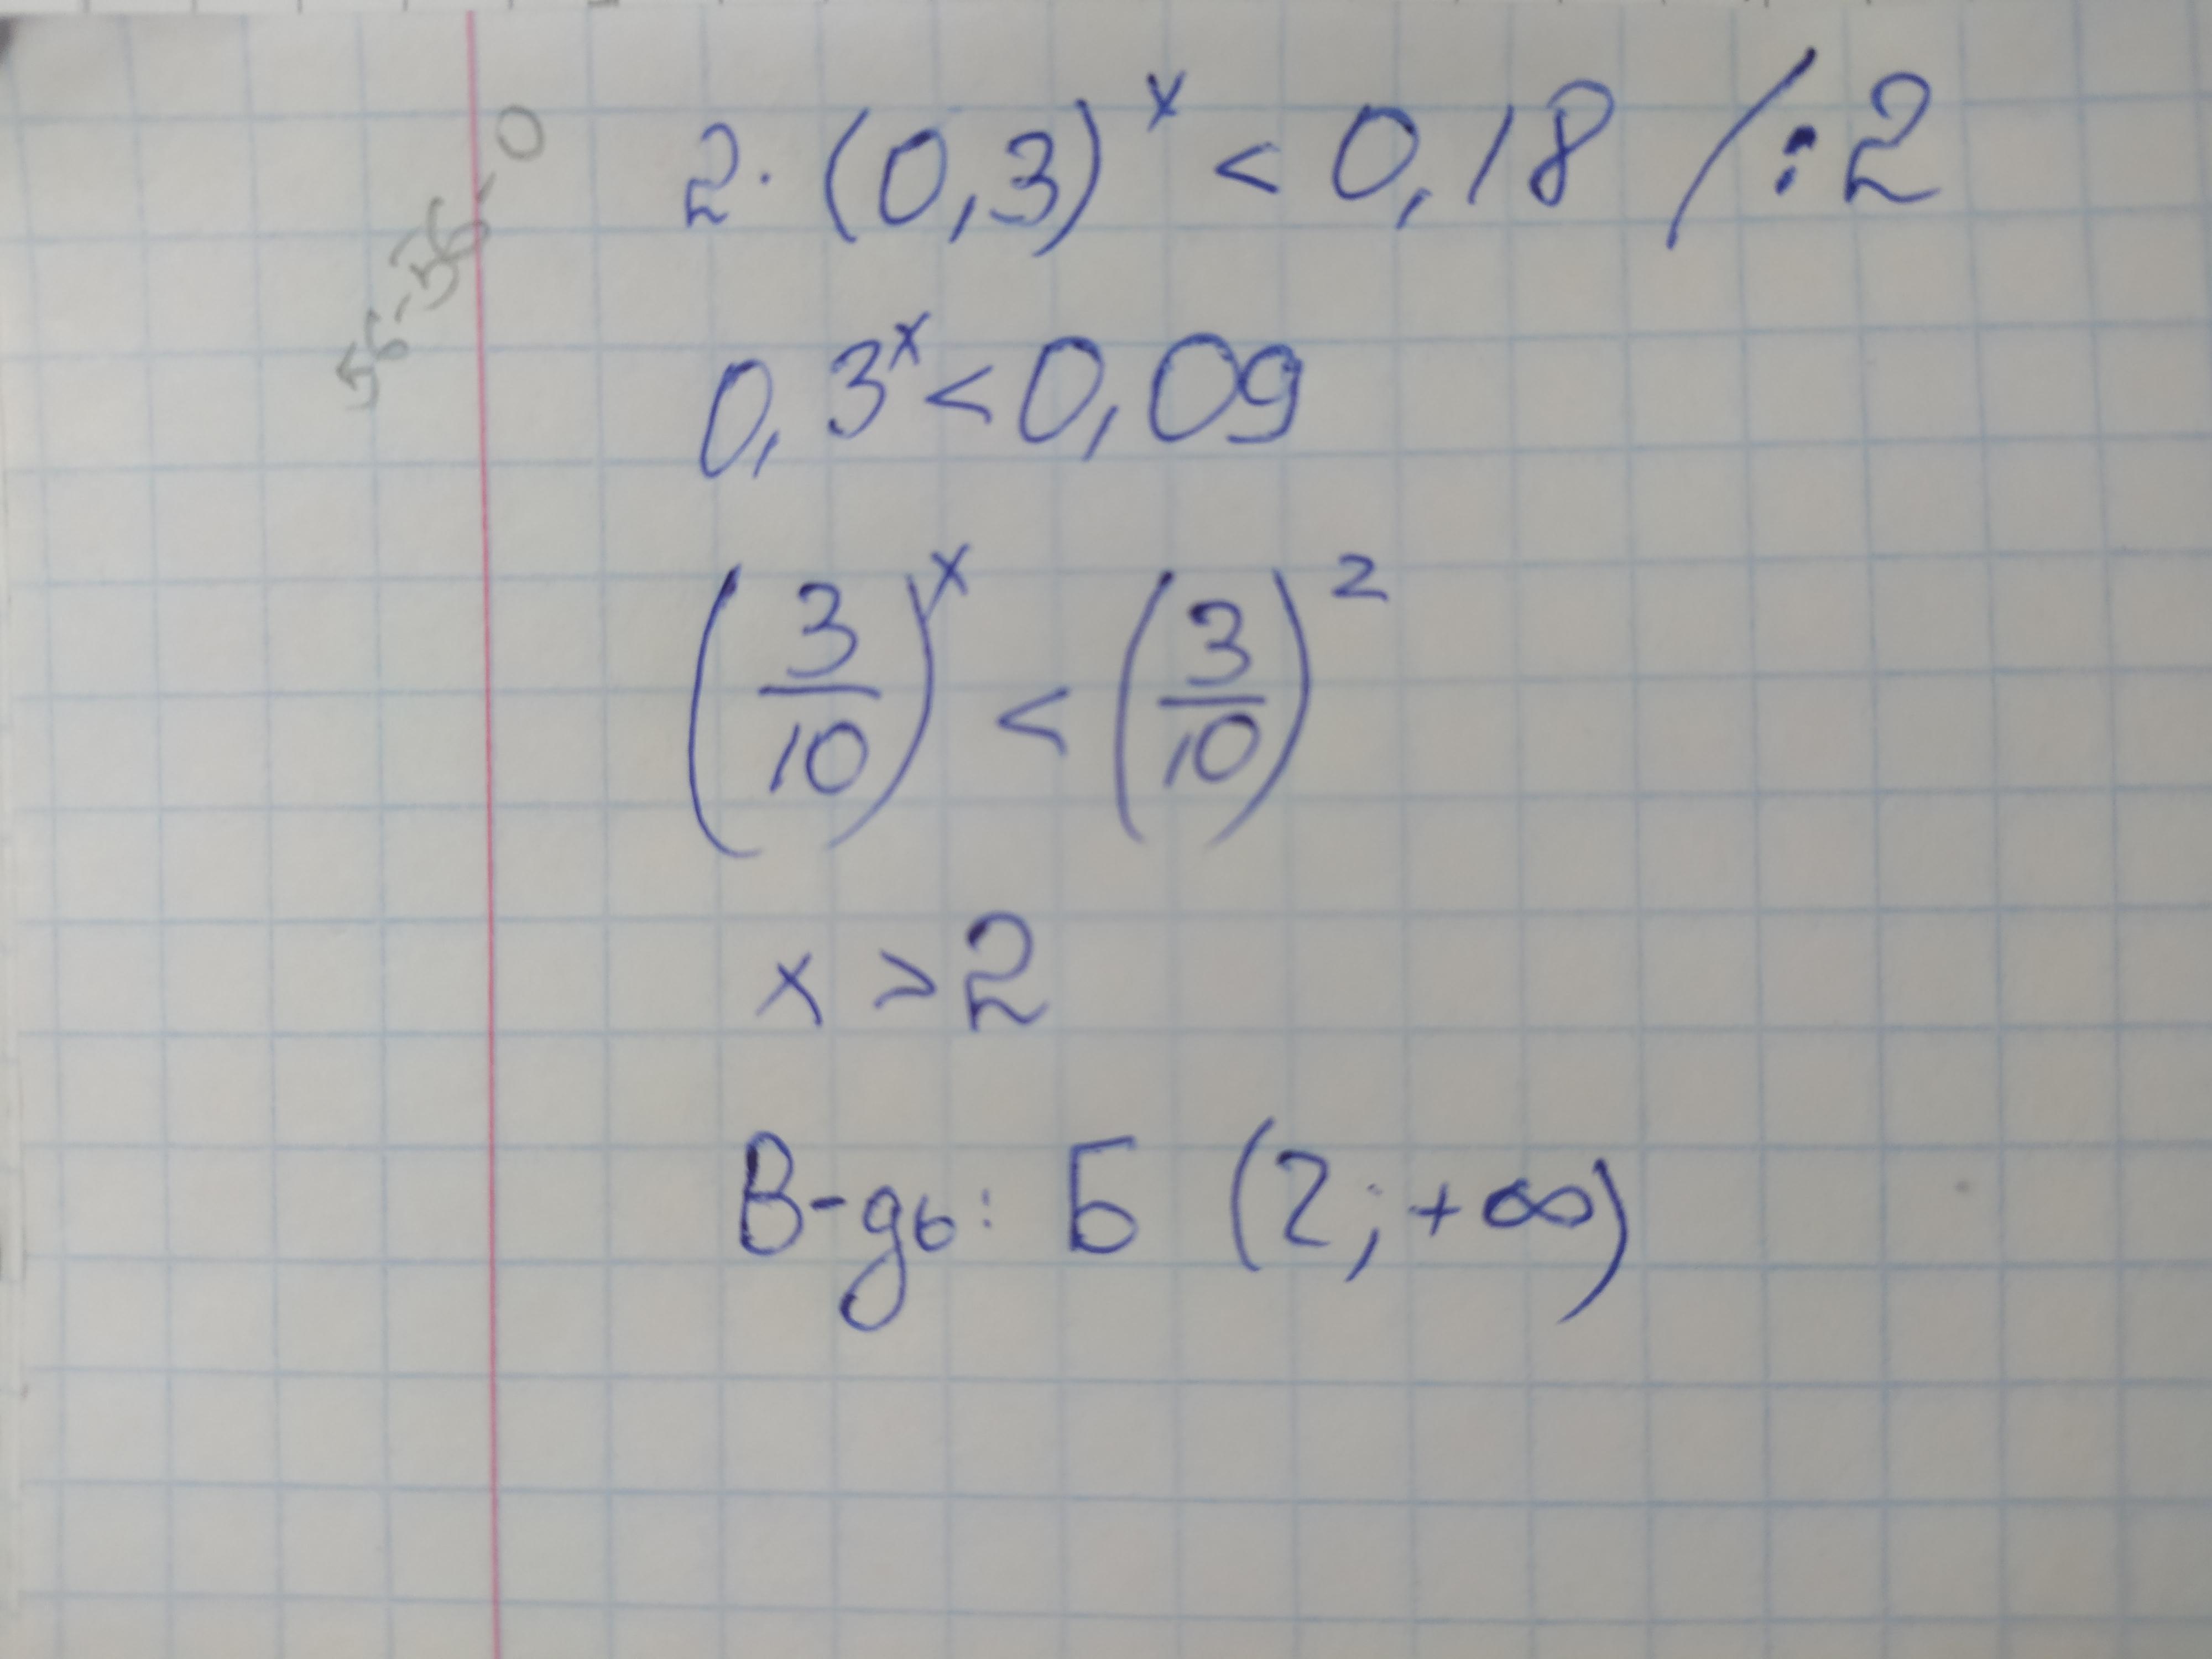 56-56-0
2·(0,3)^x < 0,18 /:2
0,3^x < 0,09
(3/10)^x < (3/10)^2
x > 2
В-дь: Б (2; +∞)